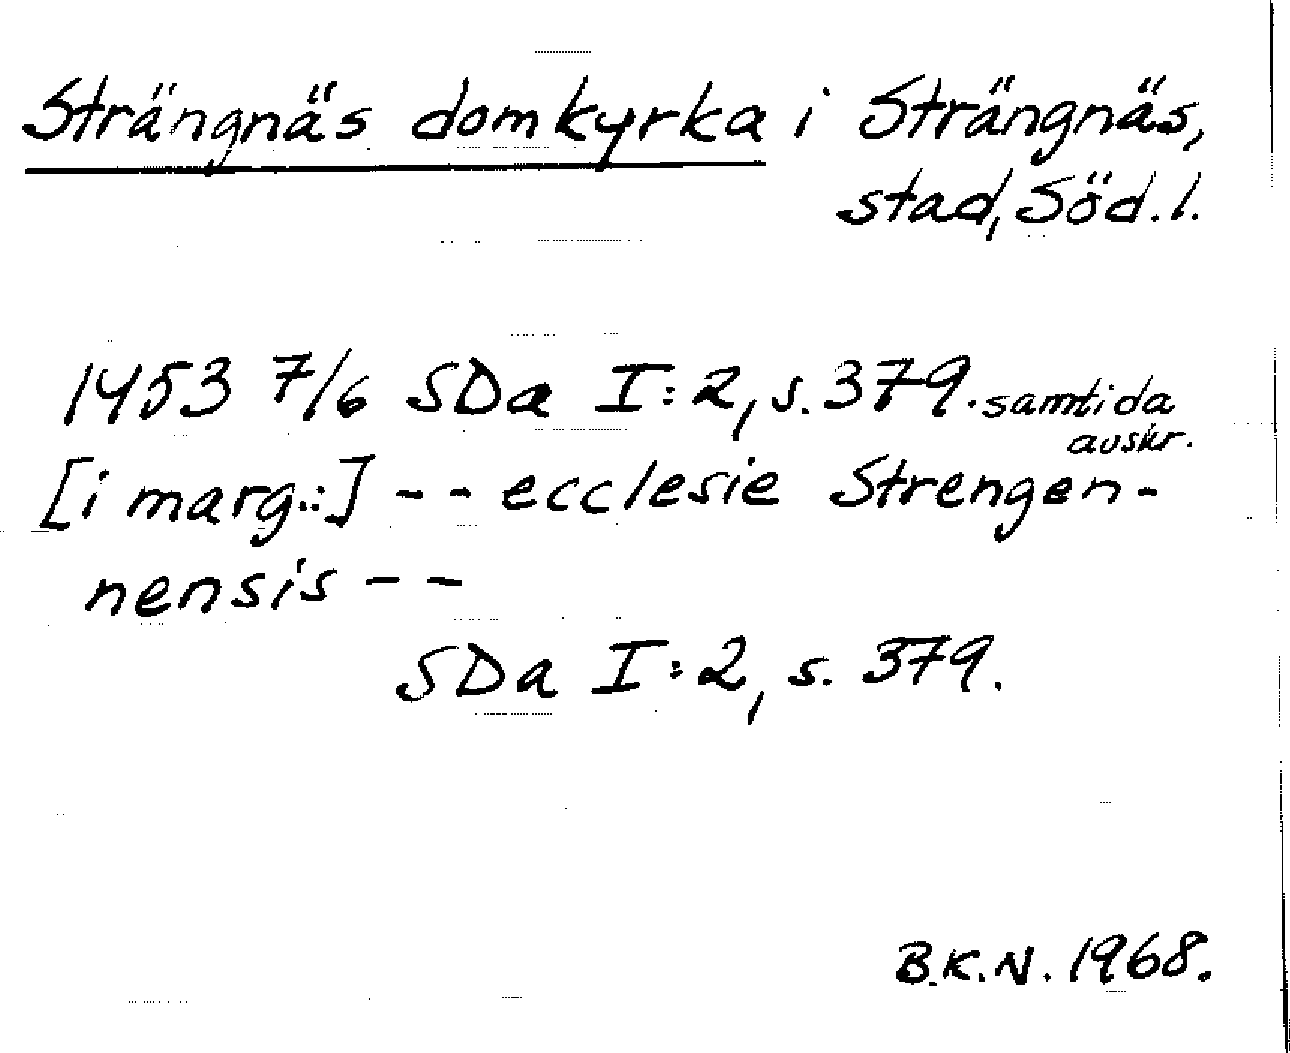 Strängnäs domkyrka i Strängnäs,
stad, Söd.l.
1453 7/6 SDa I:2, s. 379. samtida
avskr.
[i marg.:] -- ecclesie Strengen-
nensis --
SDa I:2, s. 379.
B.K.N. 1968.